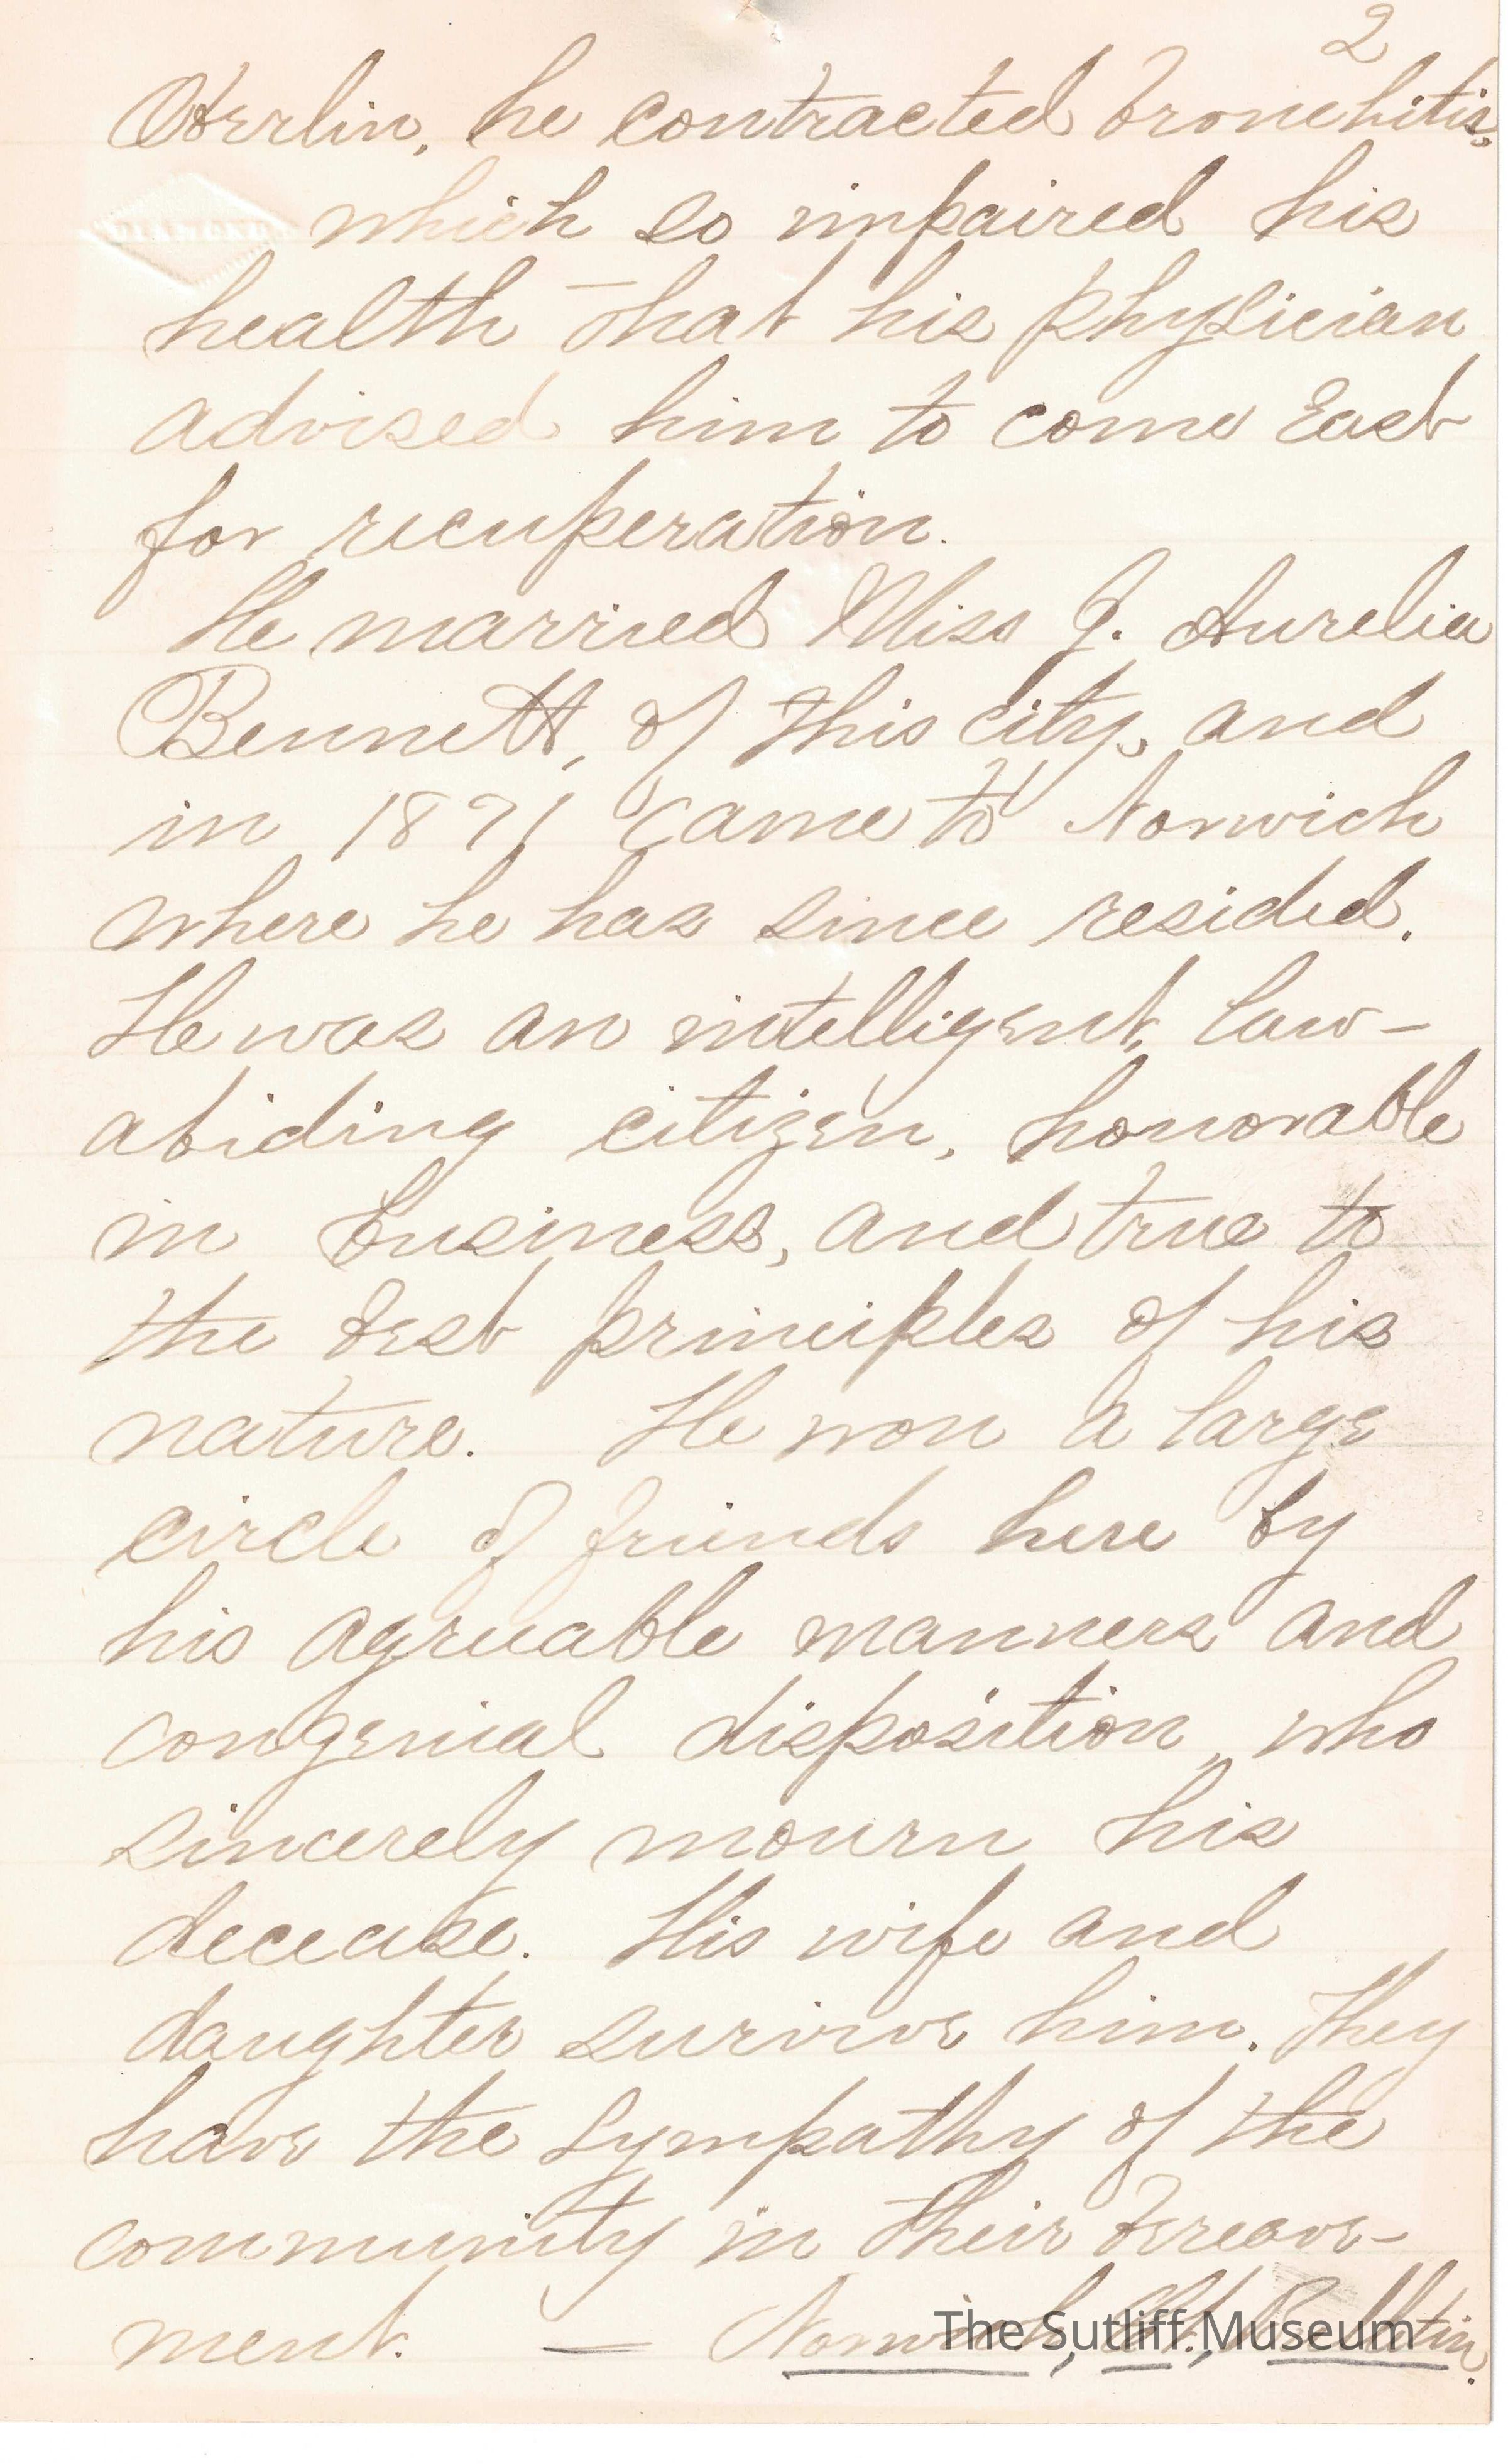 2
Oberlin, he contracted bronchitis,
DIAMOND
which so impaired his
health that his physician
advised him to come East
for recuperation.
He married Miss J. Aurelia
Bennett, of this city, and
in 1871 came to Norwich
where he has since resided.
He was an intelligent, law-
abiding citizen, honorable
in business, and true to
the best principles of his
nature. He won a large
circle of friends here by
his agreeable manners and
congenial disposition, who
sincerely mourn his
decease. His wife and
daughter survive him. They
have the sympathy of the
community in their bereave-
ment. — Norwich, Ct., Bulletin.
The Sutliff Museum